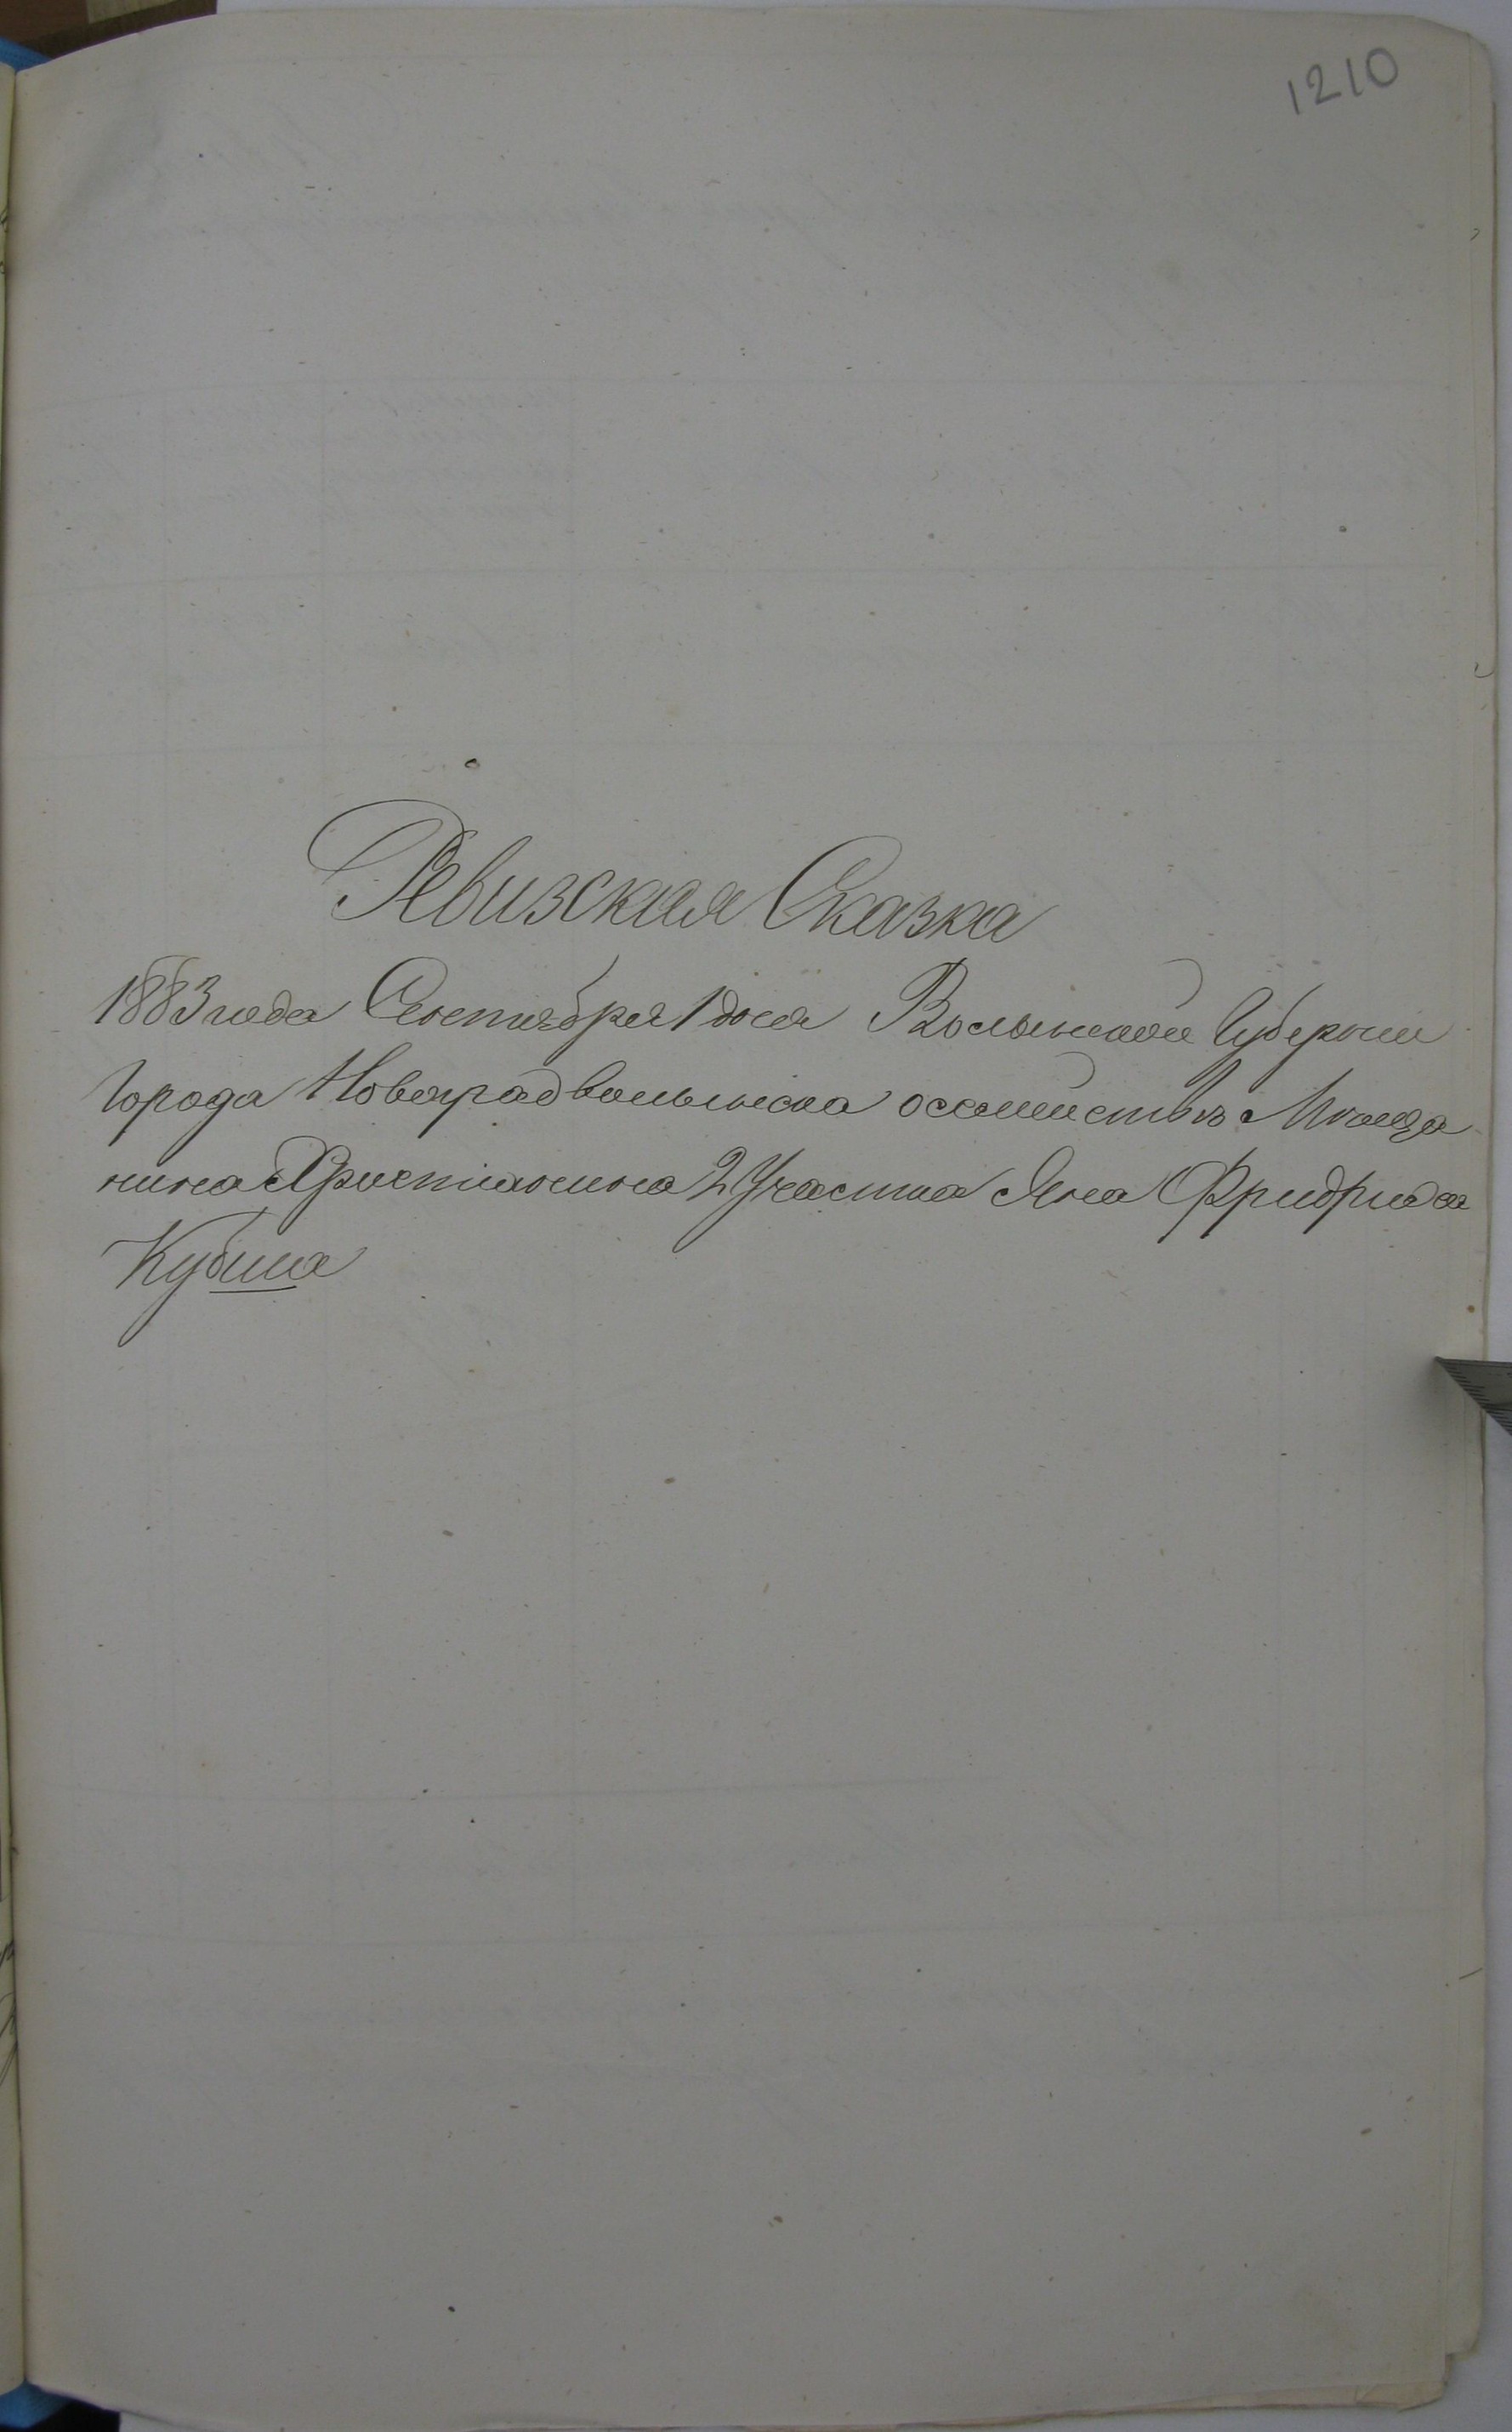 1210
Ревизская Сказка
1883 года Сентября 1 дня Волынской Губернии
Города Новоградволынска о семействѣ Мѣща
нина Христианина 2 Участка Яна Фридриха
Кубша